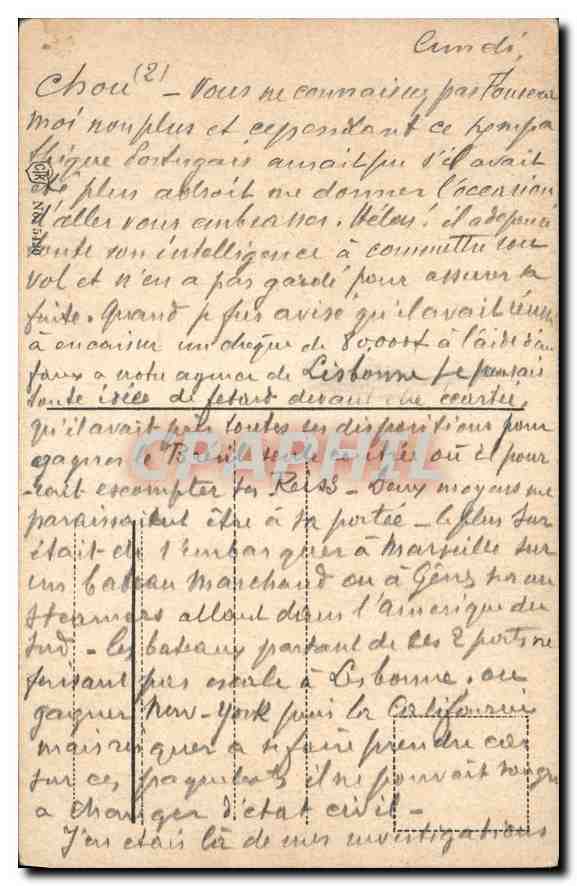 Lundi,
Chou (2) - Vous ne connaissez pas
moi non plus et cependant ce
Portugais aurait pu s'il avait
été plus adroit me donner l'occasion
d'aller vous embrasser. Hélas! il a dépensé
toute son intelligence à commettre son
vol et n'en a pas gardé pour assurer sa
fuite. Quand je fus avisé qu'il avait réussi
à encaisser un chèque de 80,000 à l'aide d'un
faux à notre agence de Lisbonne je pensais
toute idée de devant être écartée,
qu'il avait pris toutes ses dispositions pour
gagner le Brésil seule contrée où il pour
-rait escompter ses Reiss - Deux moyens me
paraissaient être à sa portée - le plus sur
était de s'embarquer à Marseille sur
un bateau marchand ou à Gênes sur un
steamers allant dans l'Amérique du
Sud - les bateaux partant de ces 2 ports ne
faisant pas escale à Lisbonne. ou
gagner New-York puis la Californie
mais risquer à se faire prendre car
sur ces paquebots il ne pouvait songer
à changer d'état civil -
J'en étais là de mes investigations
CPAPHIL